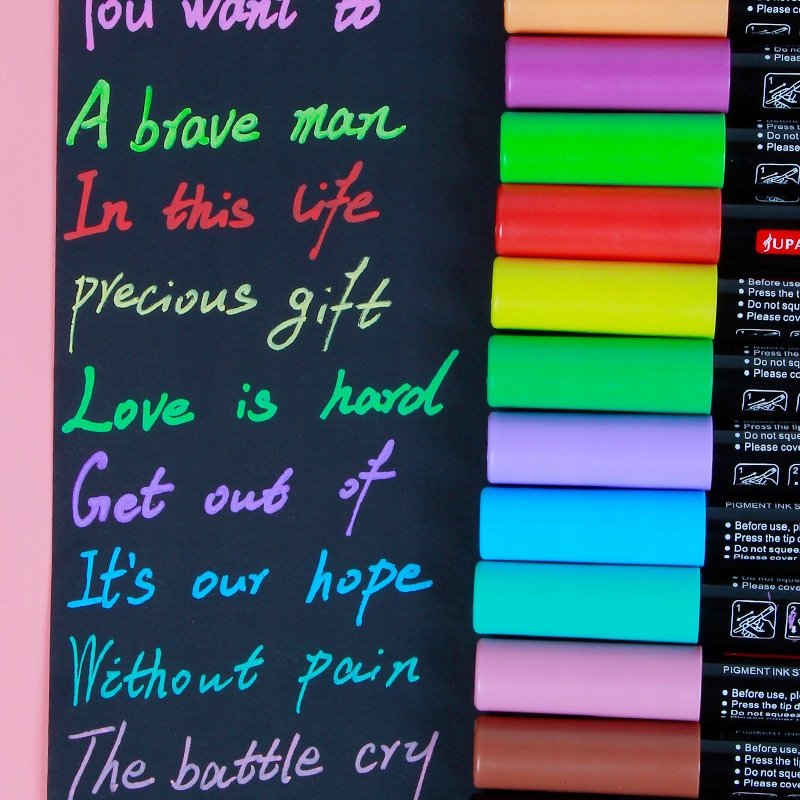 You want to
A brave man
In this life
precious gift
Love is hard
Get out of
It's our hope
Without pain
The battle cry
Please co
Do no
Pleas
1
Press t
Do not
Please
1
JUPA
Before use
Press the t
Do not squ
Please cov
Press the
Do not sq
Please co
Press the ti
Do not sque
Please cov
1
2
PIGMENT INK S
Before use, pl
Press the tip o
Do not squee
Please cove
Do not squee
Please cove
1
2
PIGMENT INK S
Before use, ple
Press the tip d
Do not squeez
PIGMENT INK
Before use,
Press the ti
Do not sque
Please cov